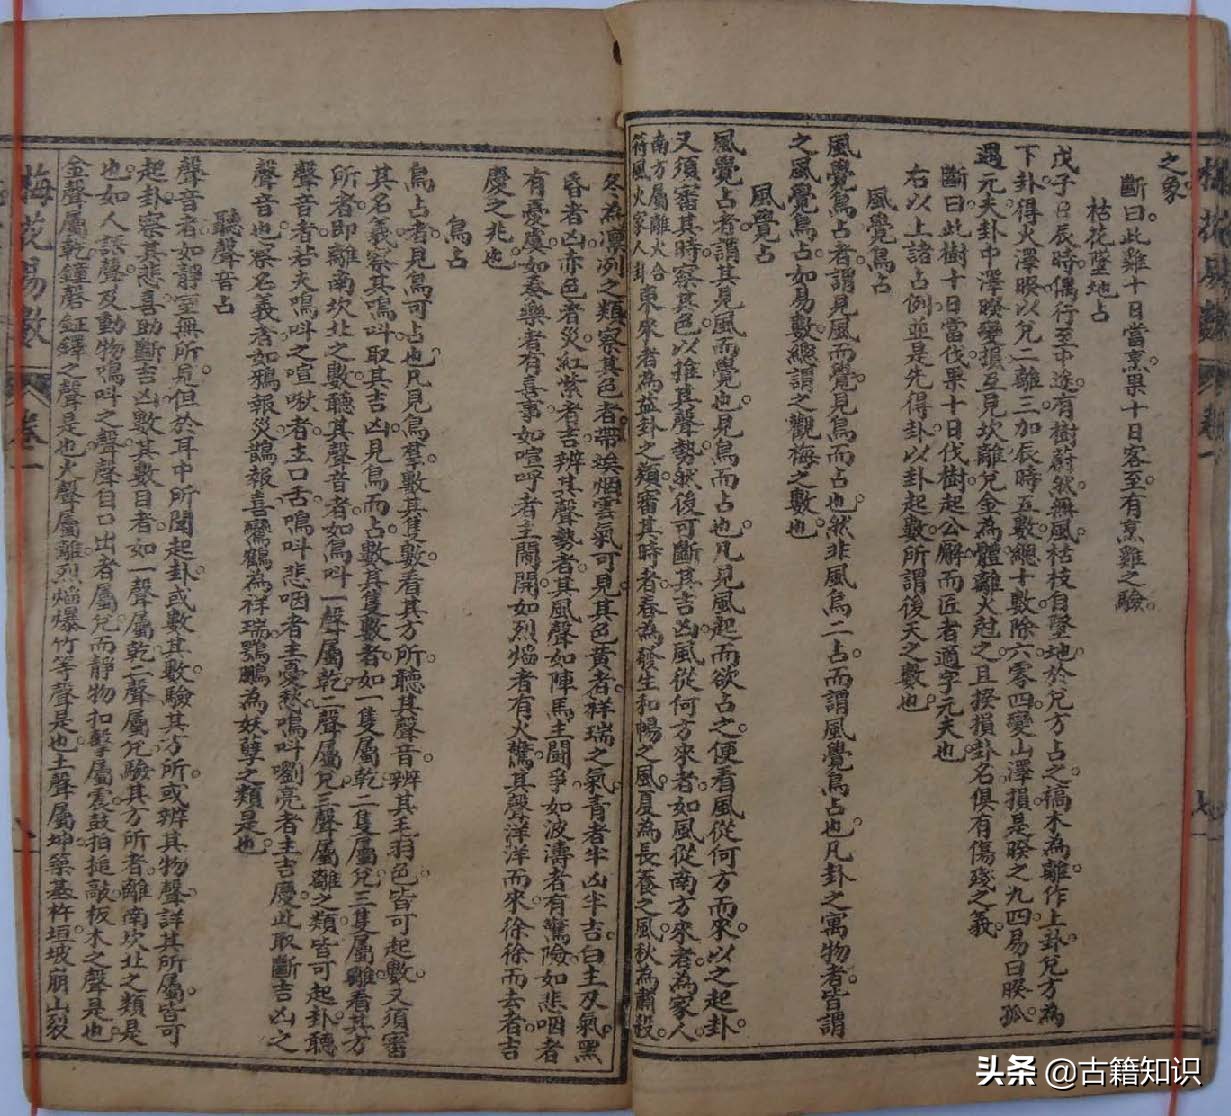 之象。
斷曰。此雞十日當烹。果十日客至。有烹雞之驗。
枯花墜地占
戊子日辰時。偶行至中途。有樹蔚然。無風枯枝自墜地於兌方。占之。槁木為離作上卦。兌方為
下卦。得火澤睽。以兌二離三加辰時五數。總十數。除六零四。變山澤損。是睽之九四。易曰睽孤。
遇元夫。卦中澤睽變損。互見坎離。兌金為體。離火尅之。且睽損卦名。俱有傷殘之義。
斷曰。此樹十日當伐。果十日伐樹。起公廨而匠者適字元夫也。
右以上諸占例。並是先得卦。以卦起數。所謂後天之數也。
風覺鳥占
風覺鳥占者。謂見風而覺。見鳥而占也。然非風鳥二占而謂風覺鳥占也。凡卦之寓物者。皆謂
之風覺鳥占。如易數總謂之觀梅之數也。
風覺占
風覺占者。謂其見風而覺也。見鳥而占也。凡見風起而欲占之。便看風從何方而來。以之起卦。
又須審其時。察其色。以推其聲勢。然後可斷其吉凶。風從何方來者。如風從南方來者。為家人
南方屬離火合
符風火家人卦
東來者為益卦之類。審其時者。春為發生和暢之風。夏為長養之風。秋為肅殺。
冬為凜冽之類。察其色者。帶埃烟雲氣可見其色。黃者祥瑞之氣。青者半凶半吉。白主刃氣。黑
昏者凶。赤色者災。紅紫者吉。辨其聲勢者。其風聲如陣馬主鬭爭。如波濤者有驚險。如悲咽者
有憂虞。如奏樂者有喜事。如喧呼者主鬧閧。如烈焰者有火驚。其聲洋洋而來。徐徐而去者。吉
慶之兆也。
鳥占
鳥占者。見鳥可占也。凡見鳥羣。數其隻數。看其方所。聽其聲音。辨其毛羽色。皆可起數。又須審
其名義。察其鳴叫。取其吉凶。見鳥而占。數其隻數者。如一隻屬乾。二隻屬兌。三隻屬離。看其方
所者。即離南坎北之數。聽其聲音者。如鳥叫一聲屬乾。二聲屬兌。三聲屬離之類。皆可起卦。聽
聲音者。若夫鳴叫之喧啾者主口舌。鳴叫悲咽者主憂愁。鳴叫嘹亮者主吉慶。此取斷吉凶之
聲音也。察名義者。如鴉報災。鵲報喜。鸞鶴為祥瑞。鶚鵬為妖孽之類是也。
聽聲音占
聲音者。如靜室無所見。但於耳中所聞起卦。或數其數。驗其方所。或辨其物聲。詳其所屬。皆可
起卦。察其悲喜。助斷吉凶。數其數目者。如一聲屬乾。二聲屬兌。驗其方所者。離南坎北之類是
也。如人語聲。及動物鳴叫之聲。聲自口出者屬兌。而靜物扣擊屬震。鼓拍搥敲板木之聲是也。
金聲屬乾。鐘磬鉦鐸之聲是也。火聲屬離。烈焰爆竹等聲是也。土聲屬坤。築基杵垣。坡崩山裂
梅花易數
卷一
头条 @古籍知识